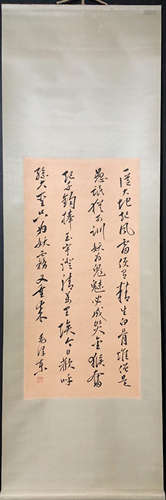 一從大地起風雷便有精生白骨堆僧是
愚氓猶可訓妖為鬼蜮必成災金猴奮
起千鈞棒玉宇澄清萬里埃今日歡呼
孫大聖只為妖霧又重來 毛澤東